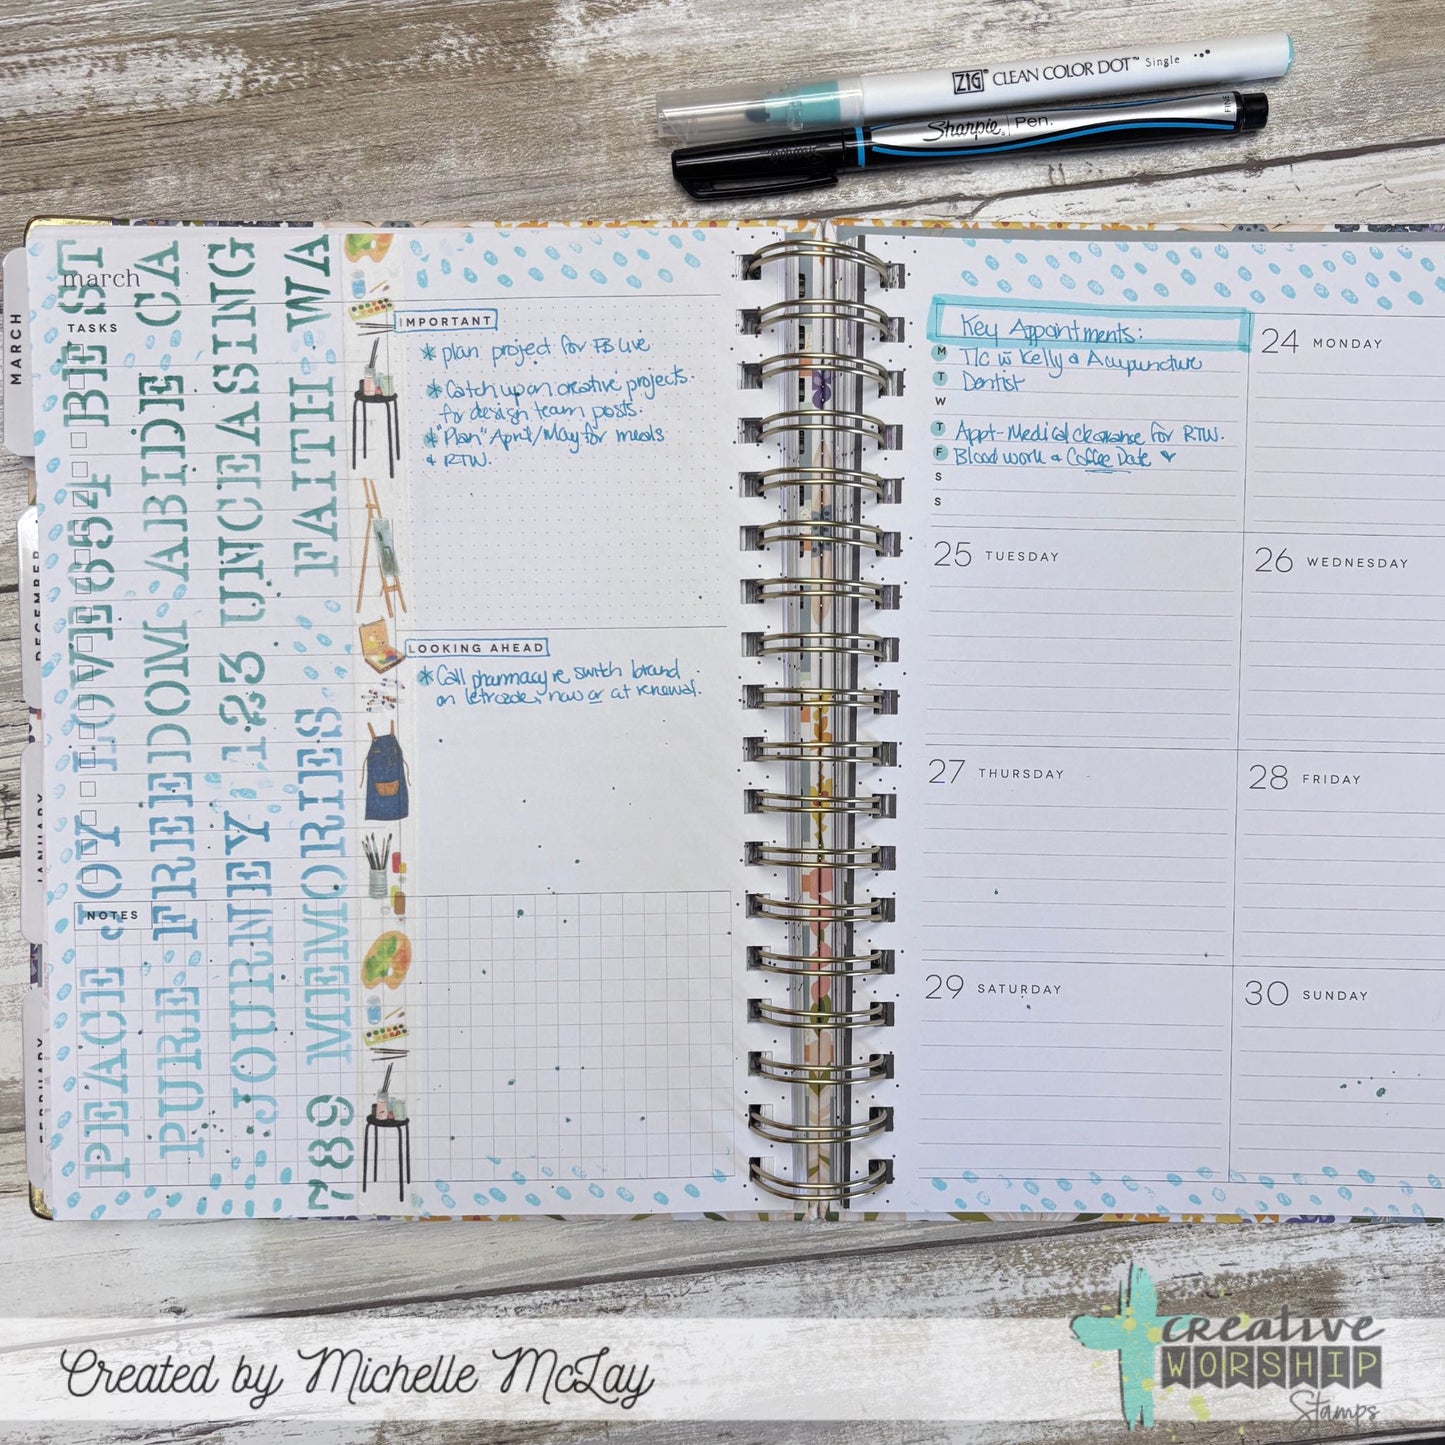 ZIG CLEAN COLOR DOT™ Single
Sharpie. Pen.
FINE
MARCH
DECEMBER
JANUARY
FEBRUARY
march
TASKS
NOTES
PEACE JOY LOVE 654 BE ST
PURE FREEDOM ABIDE CA
JOURNEY 123 UNCEASING
789 MEMORIES FAITH WA
IMPORTANT
* plan project for FB Live
* Catch up on creative projects
for design team posts.
* "Plan" April/May for meals
& RTW.
LOOKING AHEAD
* Call pharmacy re switch brand
on letrozole, now or at renewal.
Key Appointments:
M T/C w Kelly & Acupuncture
T Dentist
W
T Appt- Medical clearance for RTW.
F Bloodwork & Coffee Date ♥
S
S
24 MONDAY
25 TUESDAY
26 WEDNESDAY
27 THURSDAY
28 FRIDAY
29 SATURDAY
30 SUNDAY
Created by Michelle McLay
creative
WORSHIP
Stamps